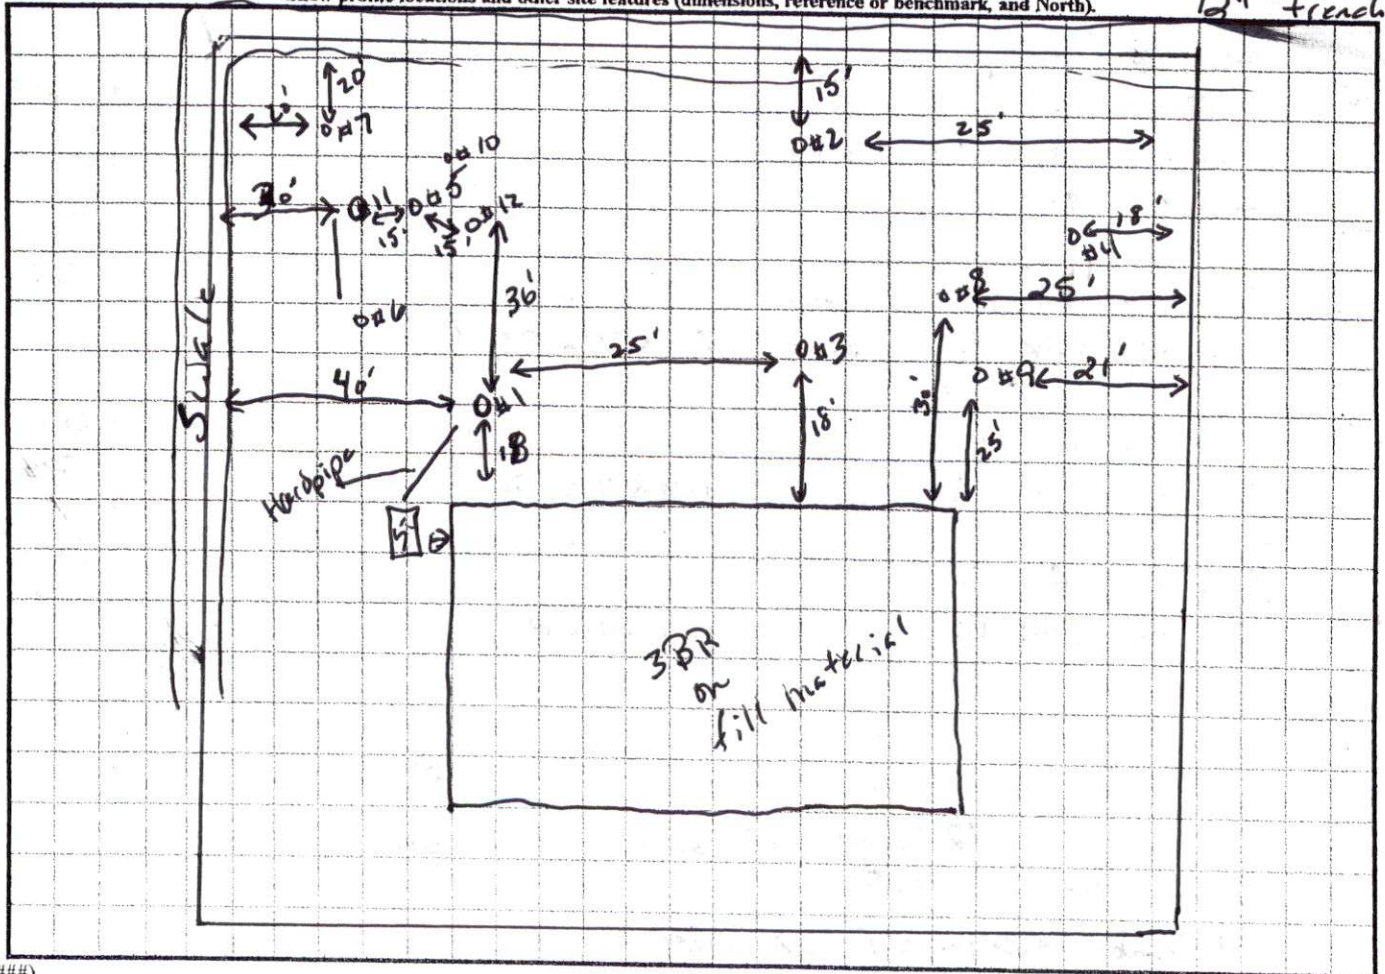 profile locations and other site features (dimensions, reference or benchmark, and North).
trench
20'
15'
#7
#2
25'
#10
#11
#5
#12
15'
15'
18'
#4
#8
25'
36'
#6
25'
#3
#9
21'
Swale
40'
#1
18
18'
30'
25'
Hardpipe
3BR
on
fill material
###)